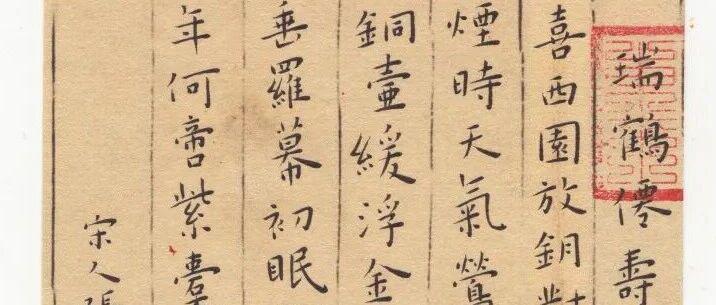 瑞鶴僊壽
喜西園放鈅
煙時天氣鶯
銅壺緩浮金
垂羅幕初眠
年何啻紫
宋人張